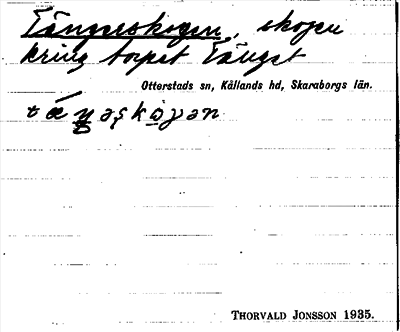 Tänneskogen, skogen
kring torpet Tänget
Otterstads sn, Kållands hd, Skaraborgs län.
THORVALD JONSSON 1935.